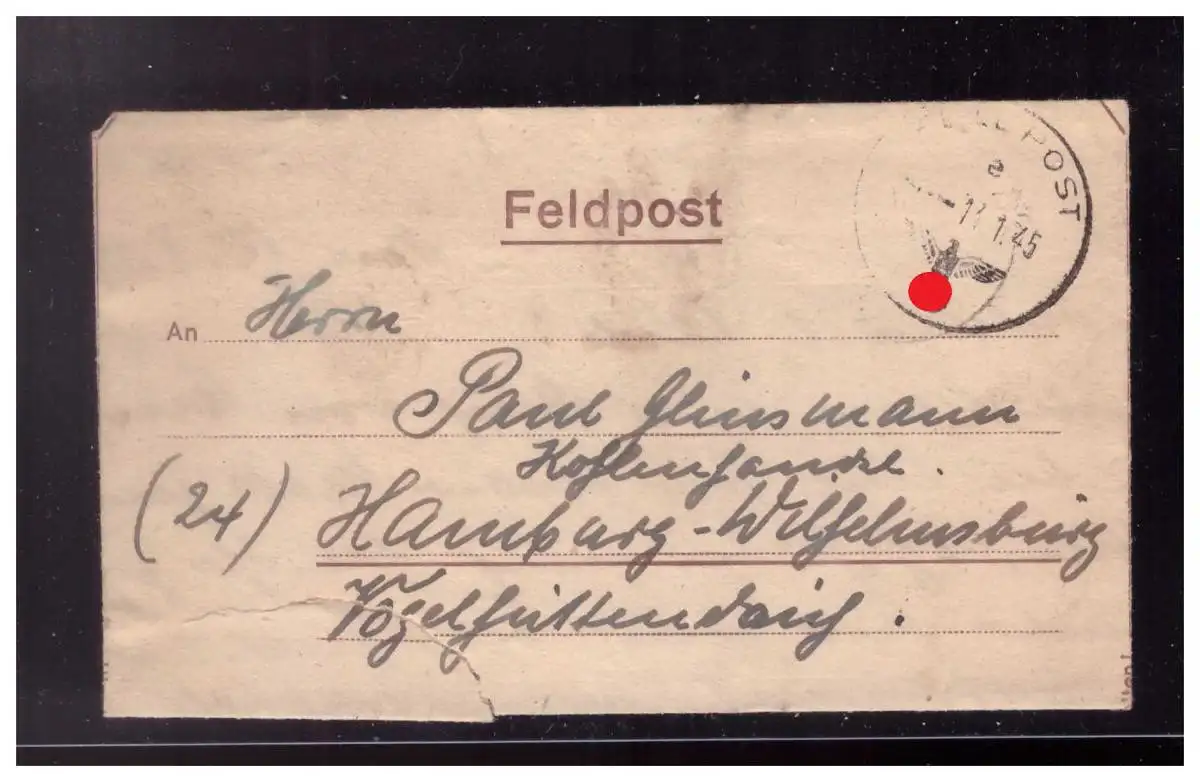 FELDPOST
a
11.1.45
Feldpost
An Herrn
Paul Glinsmann
Kohlenhandl.
(24) Hamburg-Wilhelmsburg
Vogelhüttendeich.